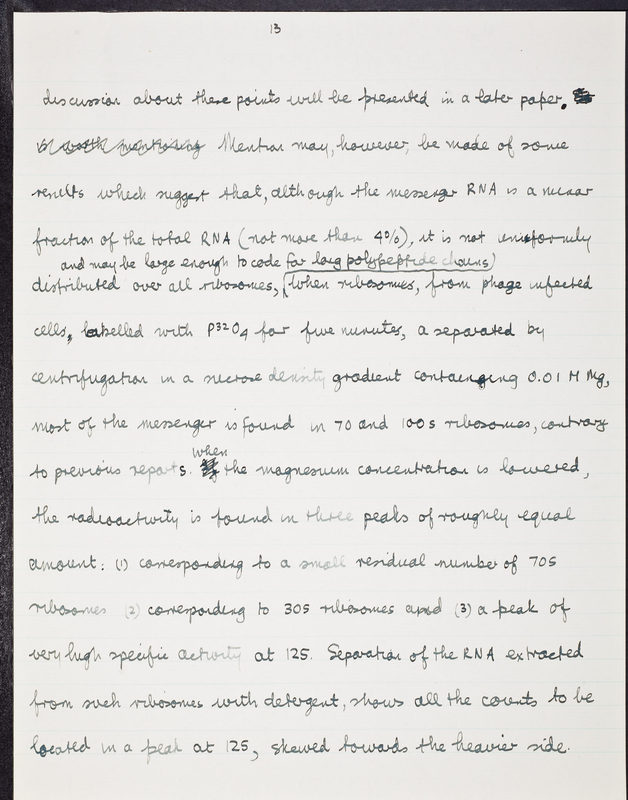 13
discussion about these points will be presented in a later paper.
is worth mentioning Mention may, however, be made of some
results which suggest that, although the messenger RNA is a minor
fraction of the total RNA (not more than 4%), it is not uniformly
and may be large enough to code for long polypeptide chains)
distributed over all ribosomes, (When ribosomes, from phage infected
cells, labelled with P32O4 for five minutes, a separated by
centrifugation in a sucrose density gradient containing 0.01 M Mg,
most of the messenger is found in 70 and 100s ribosomes, contrary
when
to previous reports. the magnesium concentration is lowered,
the radioactivity is found in three peaks of roughly equal
amount: (1) corresponding to a small residual number of 70S
ribosomes (2) corresponding to 30S ribosomes and (3) a peak of
very high specific activity at 12S. Separation of the RNA extracted
from such ribosomes with detergent, shows all the counts to be
located in a peak at 12S, skewed towards the heavier side.